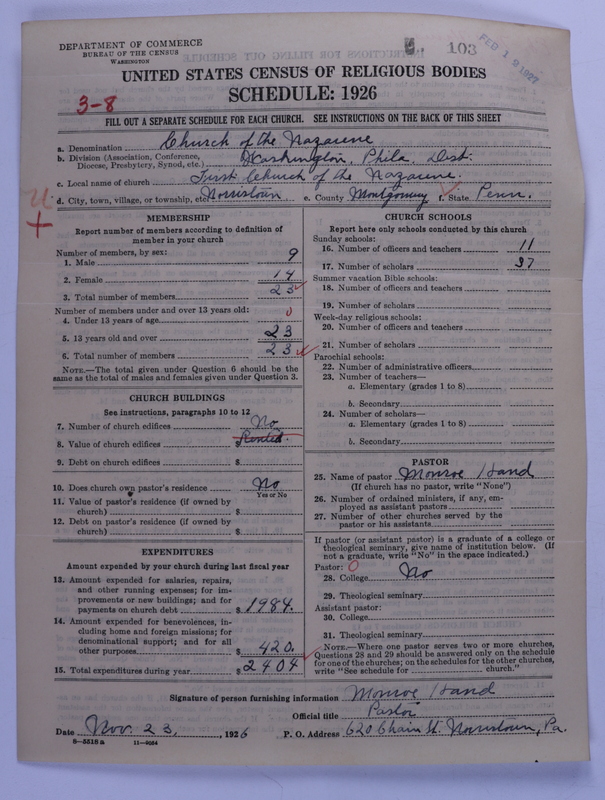 DEPARTMENT OF COMMERCE
BUREAU OF THE CENSUS
WASHINGTON
103
FEB 19 1927
UNITED STATES CENSUS OF RELIGIOUS BODIES
SCHEDULE: 1926
3-8
FILL OUT A SEPARATE SCHEDULE FOR EACH CHURCH. SEE INSTRUCTIONS ON THE BACK OF THIS SHEET
a. Denomination Church of the Nazarene
b. Division (Association, Conference, Diocese, Presbytery, Synod, etc.) Washington, Phila. Dist.
c. Local name of church First Church of the Nazarene.
d. City, town, village, or township, etc. Norristown e. County Montgomery f. State Penn.
MEMBERSHIP
Report number of members according to definition of member in your church
Number of members, by sex:
1. Male 9
2. Female 14
3. Total number of members 23
Number of members under and over 13 years old:
4. Under 13 years of age 0
5. 13 years old and over 23
6. Total number of members 23
NOTE.—The total given under Question 6 should be the same as the total of males and females given under Question 3.
CHURCH BUILDINGS
See instructions, paragraphs 10 to 12
7. Number of church edifices No
8. Value of church edifices Rented.
9. Debt on church edifices $
10. Does church own pastor's residence No
Yes or No
11. Value of pastor's residence (if owned by church) $
12. Debt on pastor's residence (if owned by church) $
EXPENDITURES
Amount expended by your church during last fiscal year
13. Amount expended for salaries, repairs, and other running expenses; for improvements or new buildings; and for payments on church debt $ 1984.
14. Amount expended for benevolences, including home and foreign missions; for denominational support; and for all other purposes $ 420.
15. Total expenditures during year $ 2404
CHURCH SCHOOLS
Report here only schools conducted by this church
Sunday schools:
16. Number of officers and teachers 11
17. Number of scholars 37
Summer vacation Bible schools:
18. Number of officers and teachers
19. Number of scholars
Week-day religious schools:
20. Number of officers and teachers
21. Number of scholars
Parochial schools:
22. Number of administrative officers
23. Number of teachers—
a. Elementary (grades 1 to 8)
b. Secondary
24. Number of scholars—
a. Elementary (grades 1 to 8)
b. Secondary
PASTOR
25. Name of pastor Monroe Hand
(If church has no pastor, write "None")
26. Number of ordained ministers, if any, employed as assistant pastors
27. Number of other churches served by the pastor or his assistants
If pastor (or assistant pastor) is a graduate of a college or theological seminary, give name of institution below. (If not a graduate, write "No" in the space indicated.)
Pastor: 0
28. College No
29. Theological seminary
Assistant pastor:
30. College
31. Theological seminary
NOTE.—Where one pastor serves two or more churches, Questions 28 and 29 should be answered only on the schedule for one of the churches; on the schedules for the other churches, write "See schedule for church."
Signature of person furnishing information Monroe Hand
Official title Pastor
Date Nov. 23, 1926 P. O. Address 620 Chain St. Norristown, Pa.
8—5518 a 11—9034